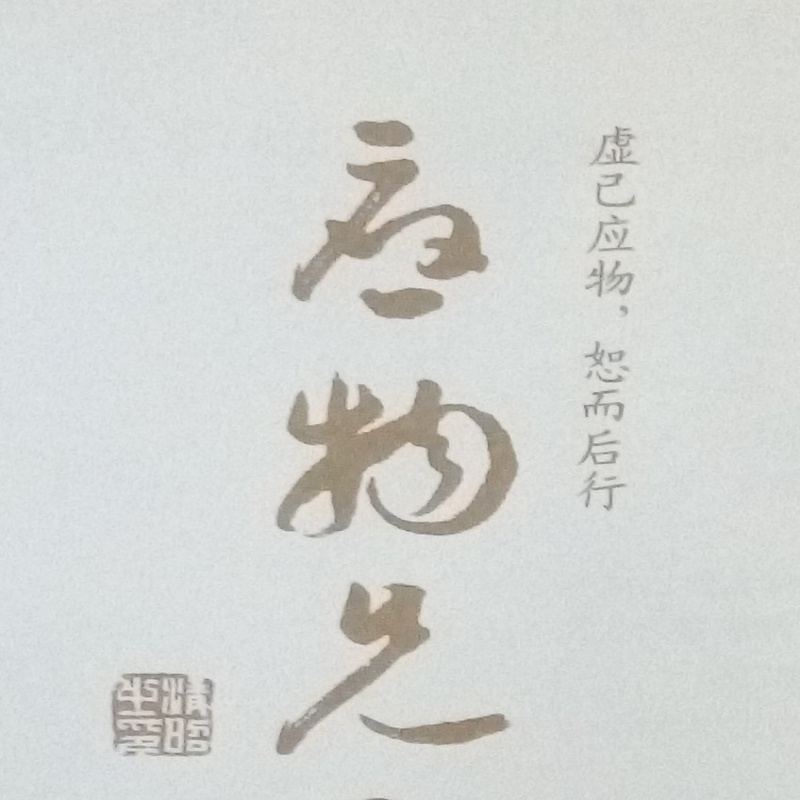 虚己应物，恕而后行
应物兄